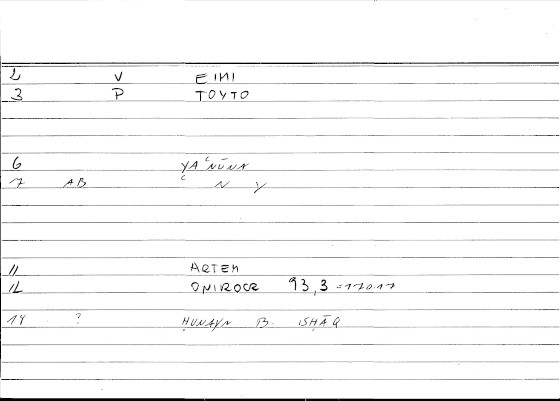 2 V EINI
3 P TOYTO
6 YAʿNŪNA
7 AB ʿ N Y
11 ARTEM
12 ONIROCR 93,3 = 17017
14 ? ḤUNAYN B. ISḤĀQ